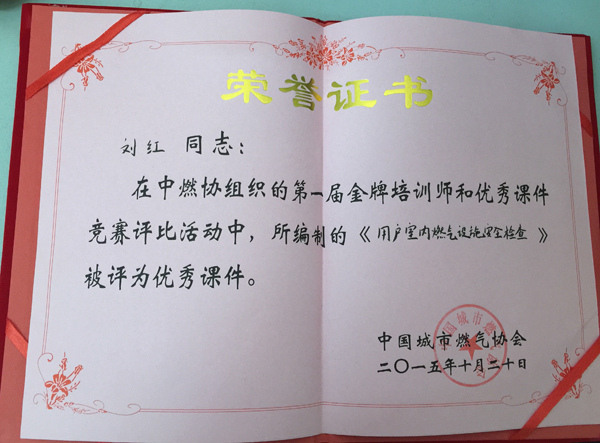 荣誉证书
刘红 同志：
在中燃协组织的第一届金牌培训师和优秀课件
竞赛评比活动中，所编制的《用户室内燃气设施安全检查》
被评为优秀课件。
中国城市燃气协会
二〇一五年十月二十日